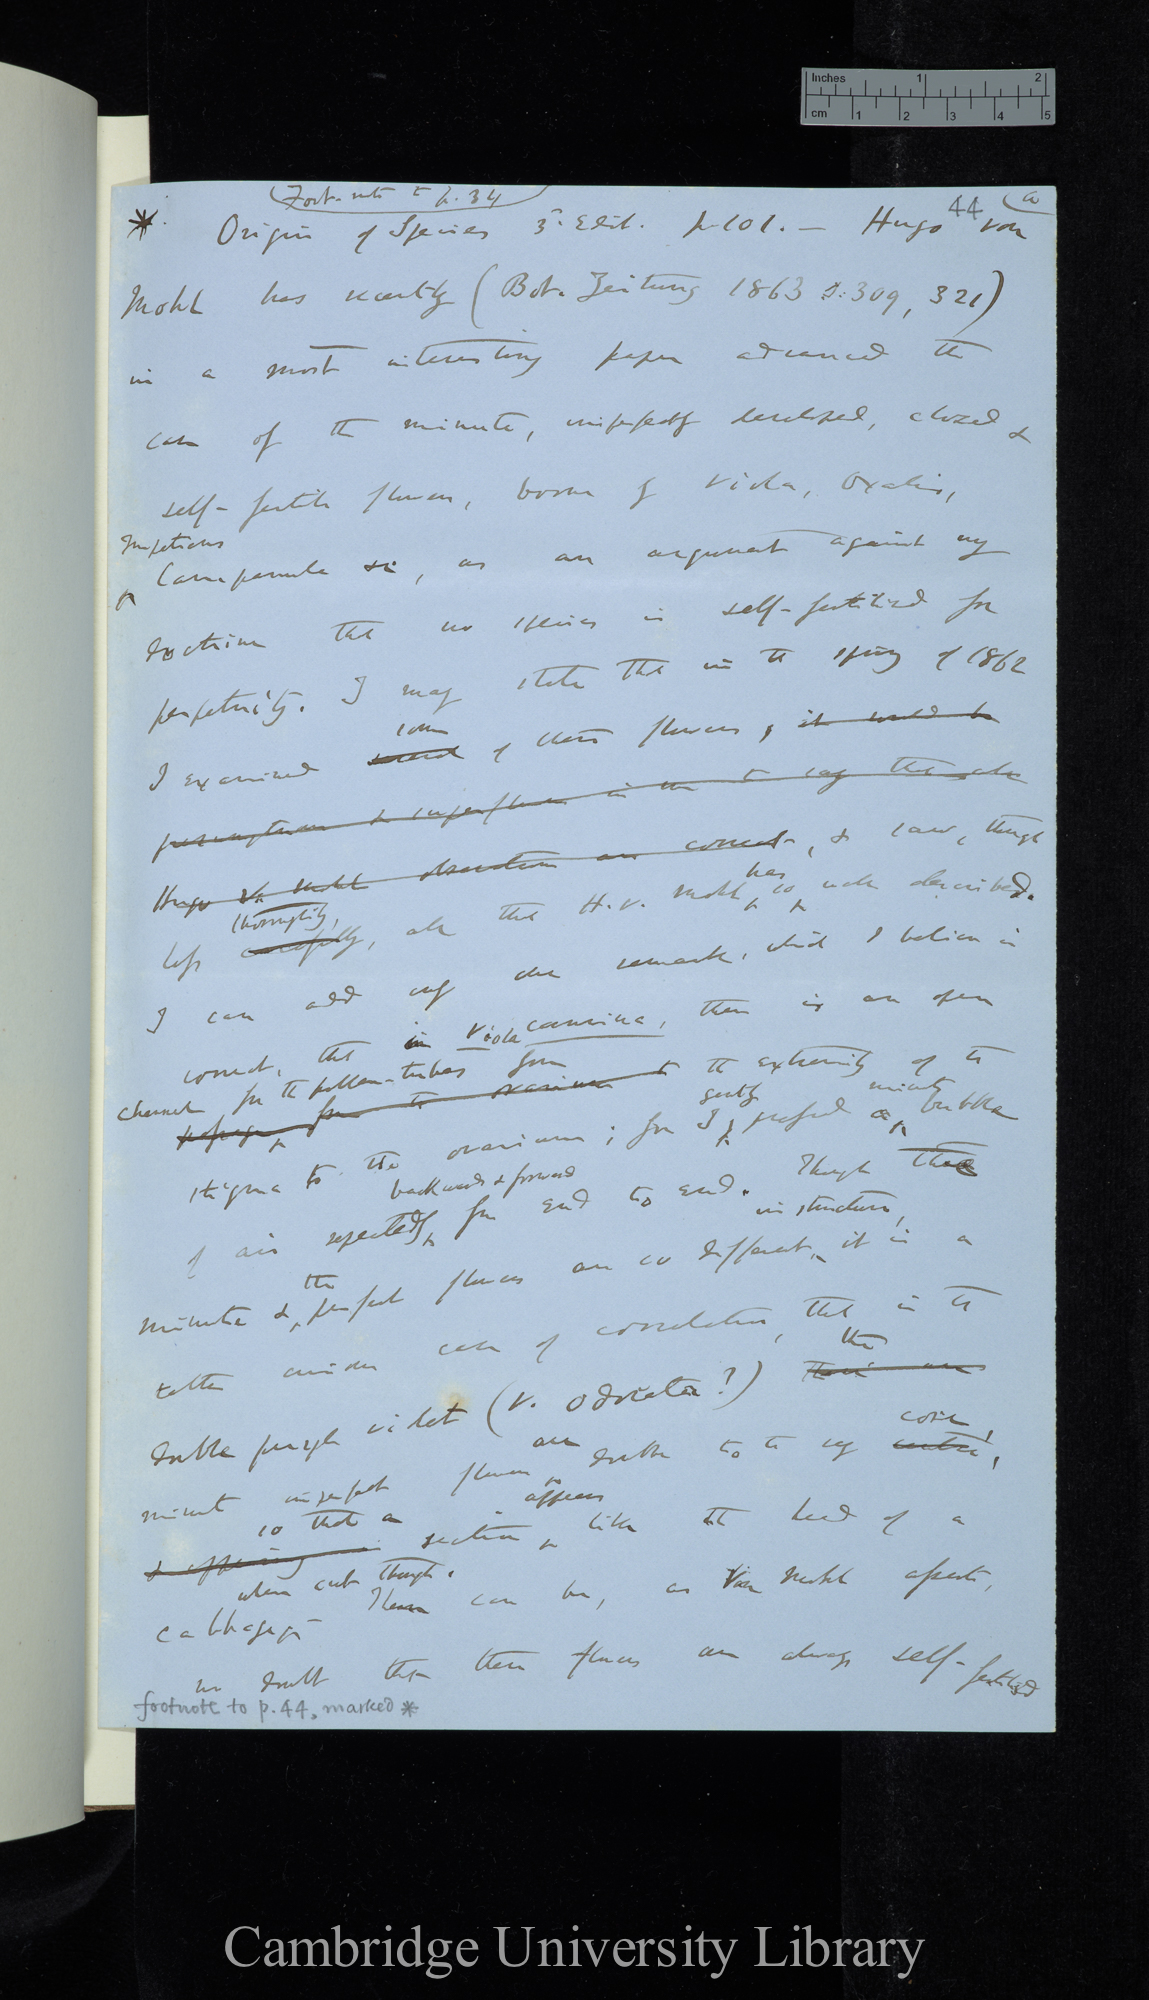 Inches 1 2
cm 1 2 3 4 5
(Foot-note to p. 34)
44 (a
* Origin of Species 3d. Edit. p. 101. — Hugo von
Mohl has recently (Bot. Zeitung 1863 s. 309, 321)
in a most interesting paper advanced the
case of the minute, imperfectly developed, closed &
self-fertile flowers, borne by Viola, Oxalis,
Impatiens
Campanula &c, as an argument against my
doctrine that no species is self-fertilised for
perpetuity. I may state that in the spring of 1862
some
I examined several of these flowers, it would be
presumptuous & superfluous in me to say that also
Hugo von Mohl observations are correct, & saw, though
has
thoroughly,
less carefully, all that H. v. Mohl so well described.
I can add only one remark, which I believe is
correct, that in Viola canina, there is an open
channel for the pollen-tubes from
passage from the ovarium to the extremity of the
gently minute
stigma to the ovarium; for I pushed a bubble
backwards & forwards
of air repeatedly from end to end. Though these
in structure,
the
minute & perfect flowers are so different, it is a
rather curious case of correlation, that in the
the
double purple violet (V. odorata?) their are
core,
are
minute imperfect flowers double to to my centre,
appears
so that a
& appearing in section like the head of a
when cut through.
cabbage There can be, as Von Mohl asserts,
no doubt that these flowers are always self-fertilised
footnote to p. 44, marked *
Cambridge University Library